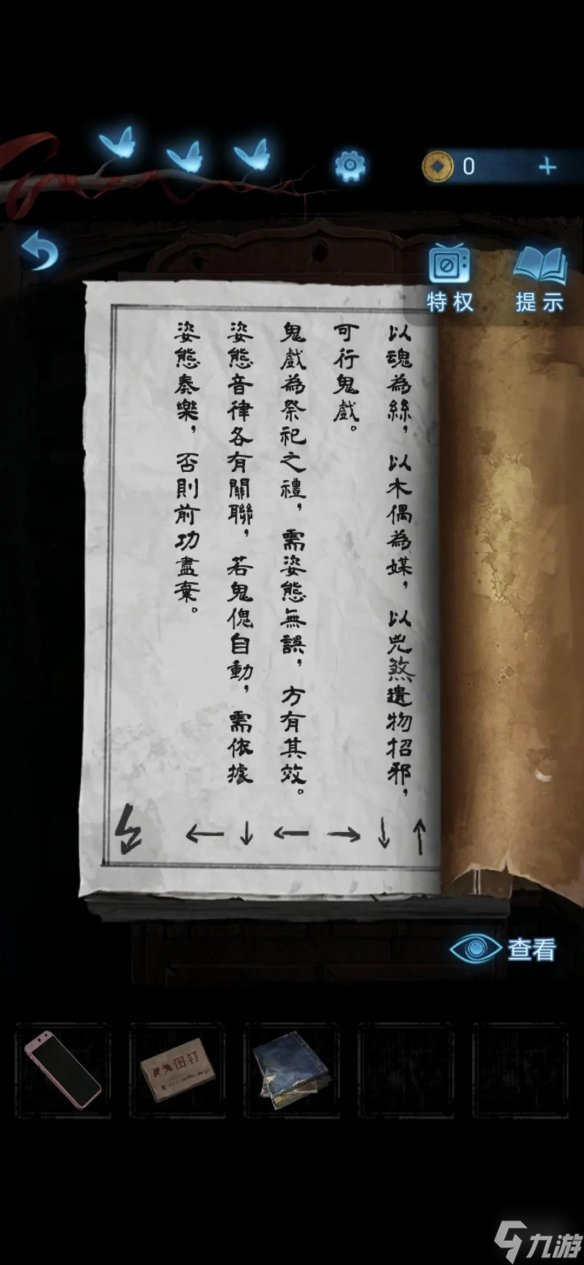 0
特权
提示
以魂為絲，以木偶為媒，以兇煞遺物招邪，
可行鬼戲。
鬼戲為祭祀之禮，需姿態無誤，方有其效。
姿態音律各有關聯，若鬼傀自動，需依據
姿態奏樂，否則前功盡棄。
↑ ↓ → ← ↓ ←
查看
图钉
九游